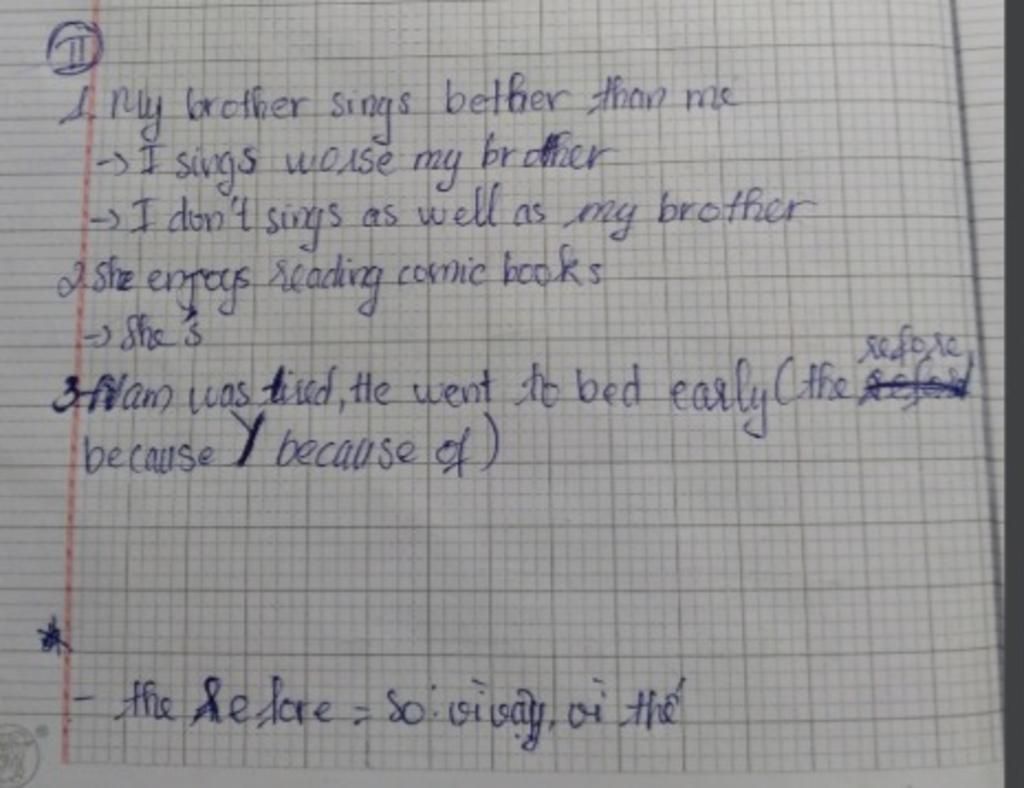 II
1. My brother sings bether than me
-> I sings worse my brother
-> I don't sings as well as my brother
2. She enjoys reading comic books
-> She's
3. Nam was tired, He went to bed early (the refore,
because / because of)
- the Refore = so: vì vậy, vì thế